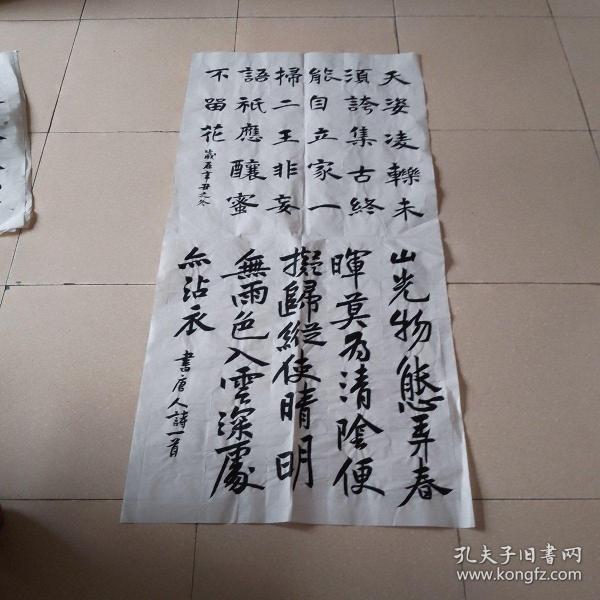 天姿凌轢未
須誇集古終
能自立家一
掃二王非妄
語祇應釀蜜
不留花
歲在辛丑之冬
山光物態弄春
暉莫為清陰便
擬歸縱使晴明
無雨色入雲深處
亦沾衣
書唐人詩一首
孔夫子旧书网
www.kongfz.com